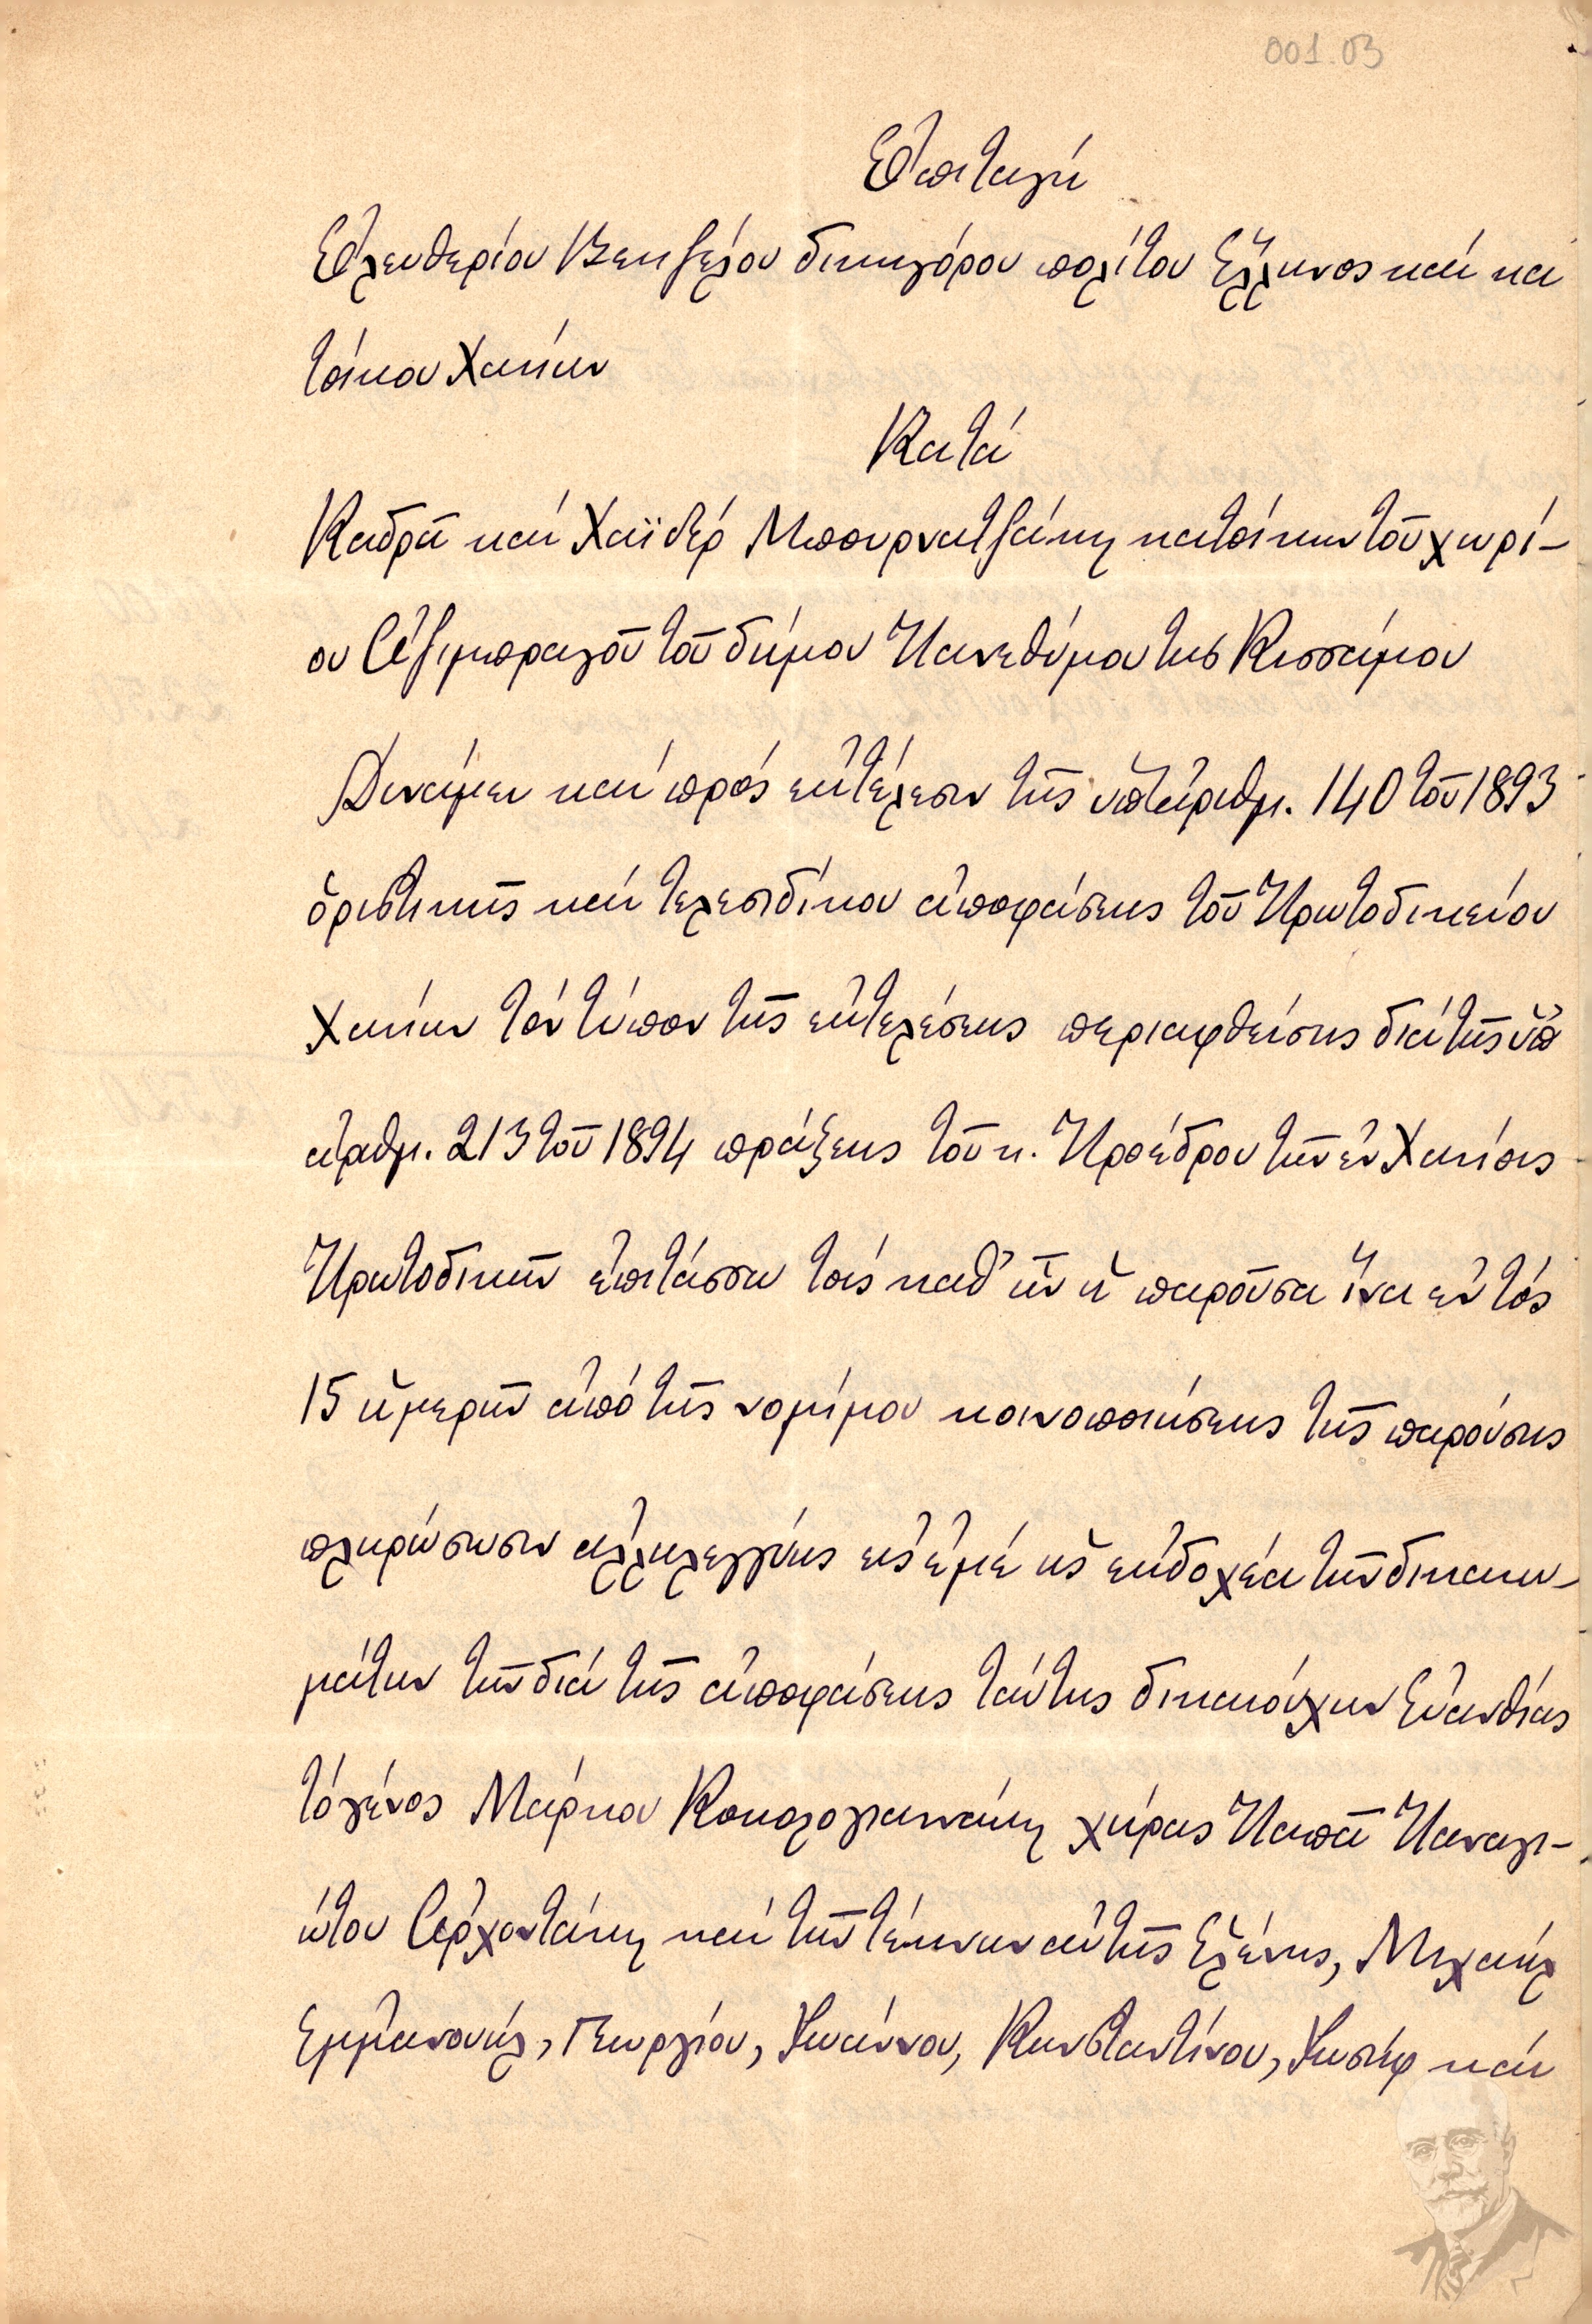 001.03
Ἐπιταγή
Ἐλευθερίου Βενιζέλου δικηγόρου πολίτου Ἕλληνος καί κα
τοίκου Χανίων
Κατά
Καδρῆ καί Χαϊδέρ Μπουρνατζάκη κατοίκων τοῦ χωρί-
ου τοῦ δήμου Πανεθύμου της Κισσάμου
Δυνάμει καί πρός ἐκτέλεσιν τῆς ὑπ' ἀριθμ. 140 τοῦ 1893
ὁριστικῆς καί τελεσιδίκου ἀποφάσεως τοῦ Πρωτοδικείου
Χανίων τόν τύπον τῆς ἐκτελέσεως περιαφθείσης διά τῆς ὑπ'
ἀριθμ. 213 τοῦ 1894 πράξεως τοῦ κ. Προέδρου τῶν ἐν Χανίοις
Πρωτοδικῶν ἐπιτάσσω τοῖς καθ' ὧν ἡ παροῦσα ἵνα ἐντός
15 ἡμερῶν ἀπό τῆς νομίμου κοινοποιήσεως τῆς παρούσης
πληρώσωσιν ἀλληλεγγύως εἰς ἐμέ ὡς ἐκδοχέα τῶν δικαιω-
μάτων τῶν διά τῆς ἀποφάσεως ταύτης δικαιούχων Εὐανθίας
τό γένος Μάρκου Κοκολογιαννάκη χήρας Παπᾶ Παναγι-
ώτου Ἀρχοντάκη καί τῶν τέκνων αὐτῆς Ἑλένης, Μιχαήλ
Ἐμμανουήλ, Γεωργίου, Ἰωάννου, Κωνσταντίνου, Ἰωσήφ καί